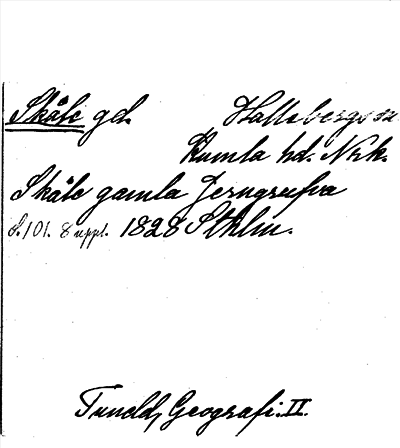 Skåle gd. Hallsbergs sn
Kumla hd. Nrk.
Skåle gamla Jerngrufva
S. 101. 8 uppl. 1828 Sthlm.
Tuneld, Geografi. II.